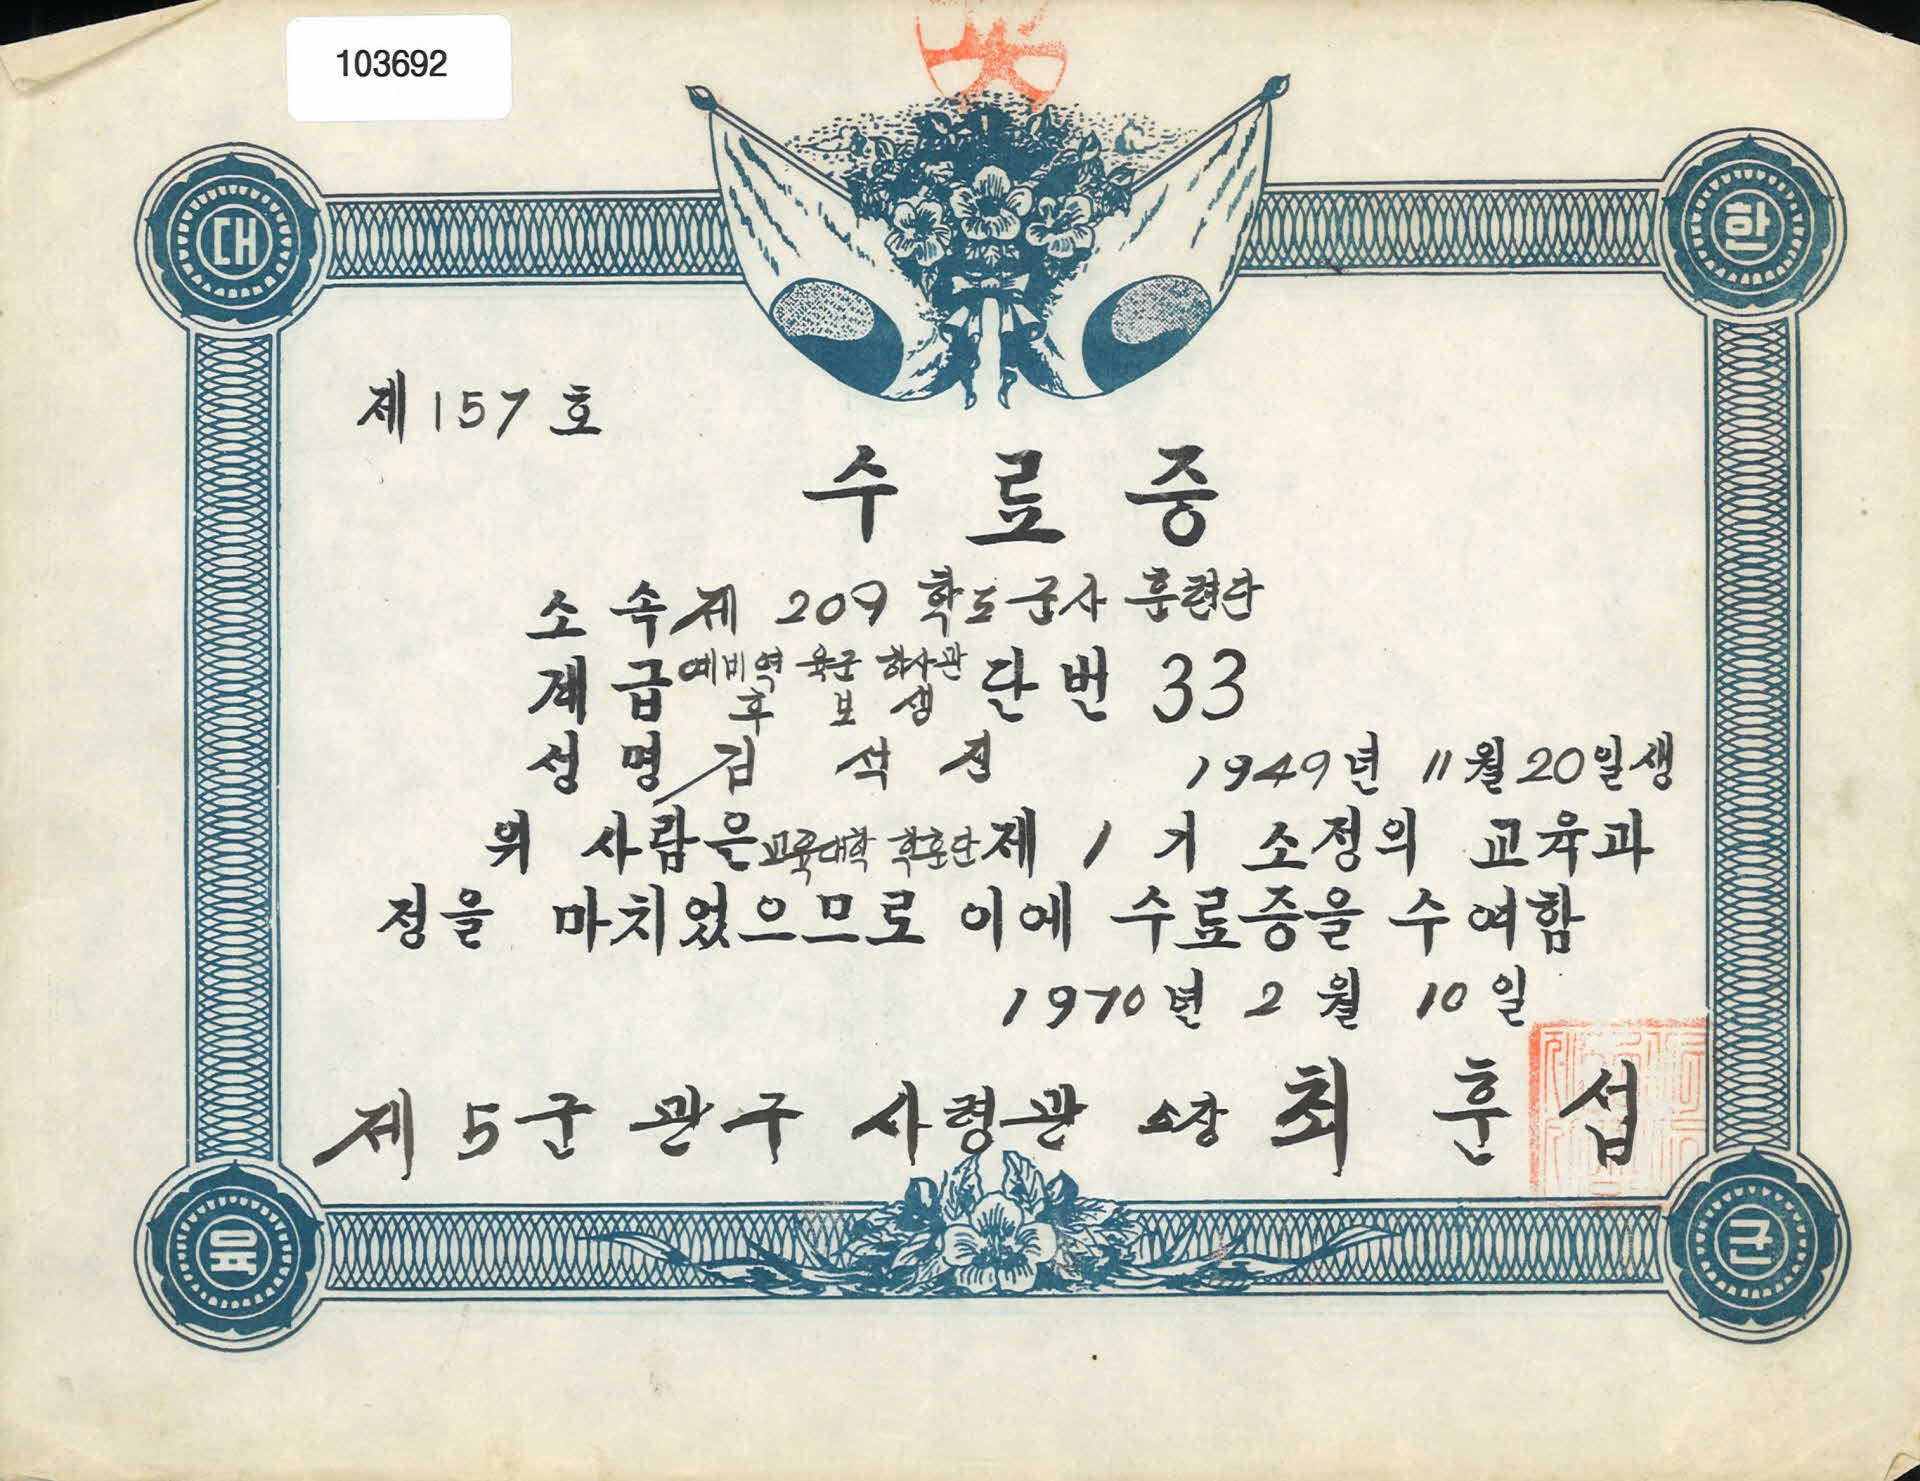 103692
대 한
제 157 호
수 료 증
소 속 제 209 학도군사 훈련단
계 급 예비역 육군 하사관 후 보 생 단 번 33
성 명 김 석 진 1949년 11월 20일생
위 사람은 교육대학 학훈단 제 1 기 소정의 교육과
정을 마치었으므로 이에 수료증을 수여함
1970년 2월 10일
제 5군 관구 사령관 소장 최 훈 섭
육 군